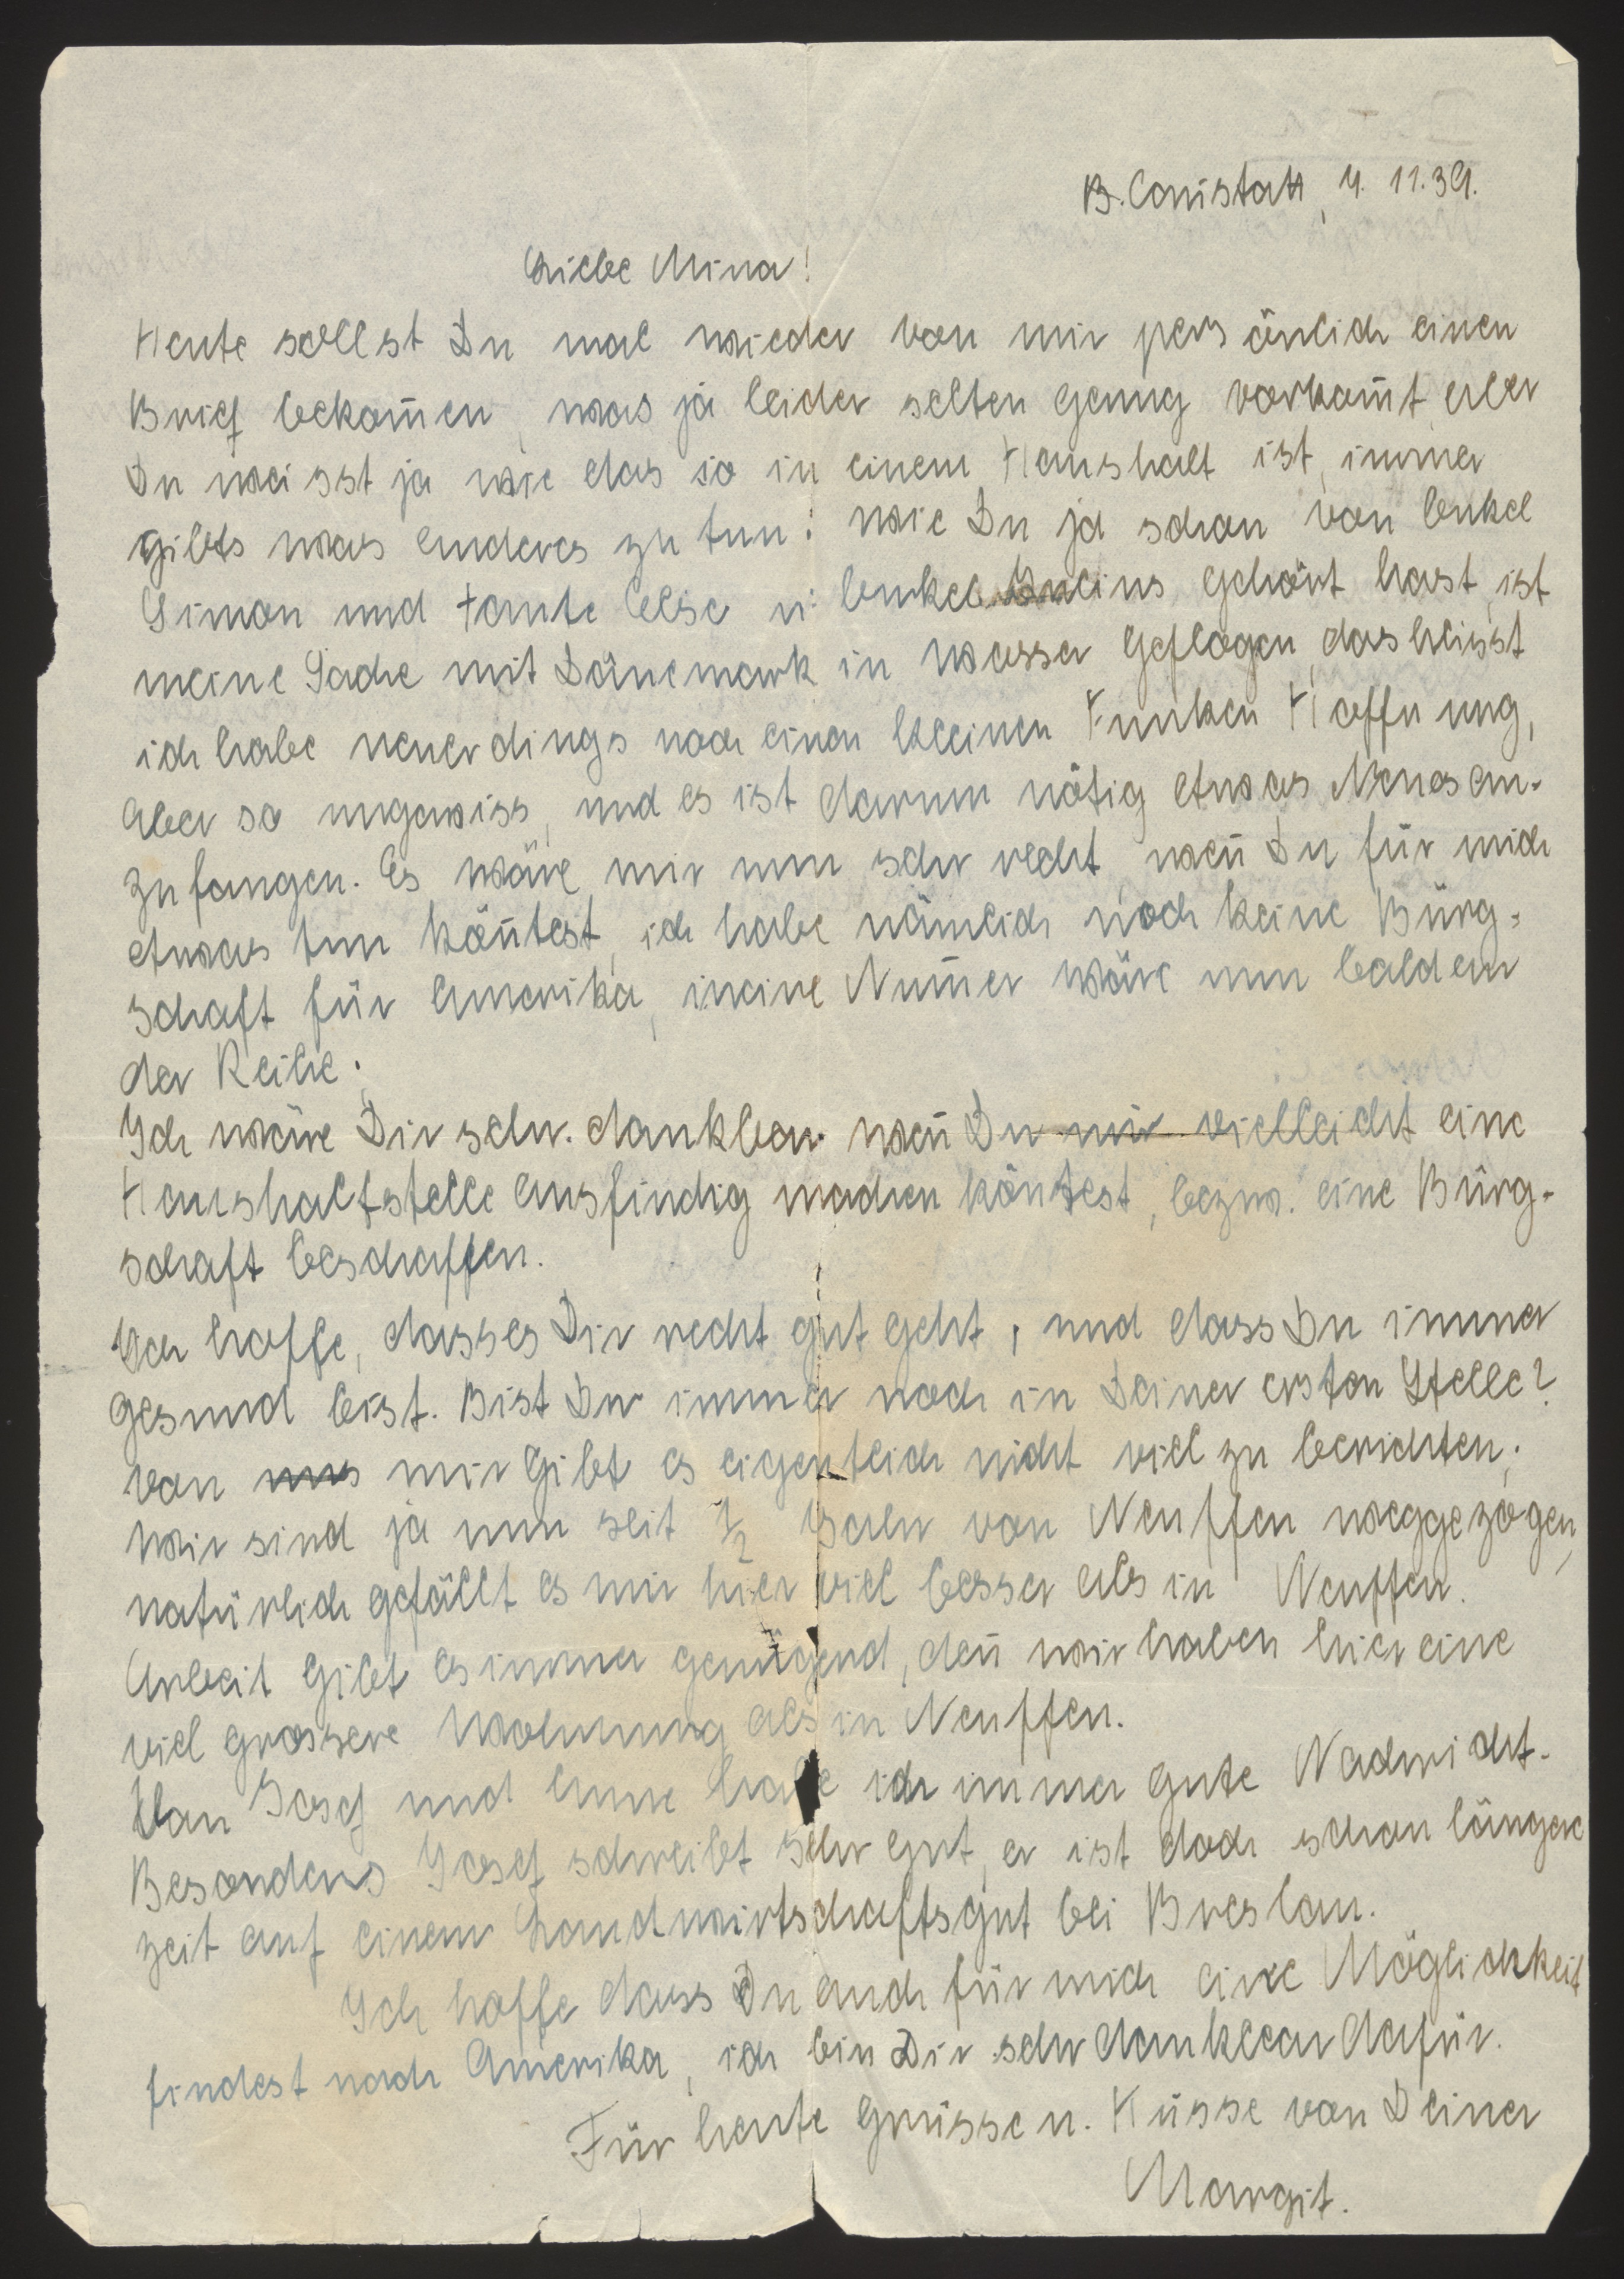 B. Cannstatt, 4. 11. 39.
Liebe Mina!
Heute sollst Du mal wieder von mir persönlich einen
Brief bekom̄en, was ja leider selten genug vorkom̄t, aber
Du weisst ja wie das so in einem Haushalt ist, immer
gibts was anderes zu tun. Wie Du ja schon von Onkel
Simon und Tante Else u. Onkel Julius gehört hast, ist
meine Sache mit Dänemark in Wasser geflogen, das heisst
ich habe neuerdings noch einen kleinen Funken Hoffnung,
aber so ungewiss, und es ist darum nötig etwas Neues an-
zufangen. Es wäre mir nun sehr recht, wen̄ Du für mich
etwas tun kön̄test, ich habe nämlich noch keine Bürg-
schaft für Amerika, meine Num̄er wäre nun bald an
der Reihe.
Ich wäre Dir sehr dankbar wen̄ Du mir vielleicht eine
Haushaltstelle ausfindig machen köntest, bezw. eine Bürg-
schaft beschaffen.
Ich hoffe, dass es Dir recht gut geht, und dass Du immer
gesund bist. Bist Du immer noch in Deiner ersten Stelle?
Von uns mir gibt es eigentlich nicht viel zu berichten.
Wir sind ja nun seit ½ Jahr von Neuffen weggezogen,
natürlich gefällt es mir hier viel besser als in Neuffen.
Arbeit gibt es immer genügend, den̄ wir haben hier eine
viel grössere Wohnung als in Neuffen.
Von Josef und Anne habe ich immer gute Nachricht.
Besonders Josef schreibt sehr gut, er ist doch schon längere
zeit auf einem Landwirtschaftsgut bei Breslau.
Ich hoffe dass Du auch für mich eine Möglichkeit
findest nach Amerika, ich bin Dir sehr dankbar dafür.
Für heute Grüsse u. Küsse von Deiner
Margit.